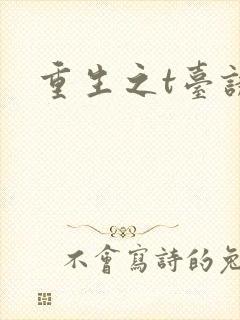 重生之t臺
不會寫詩的